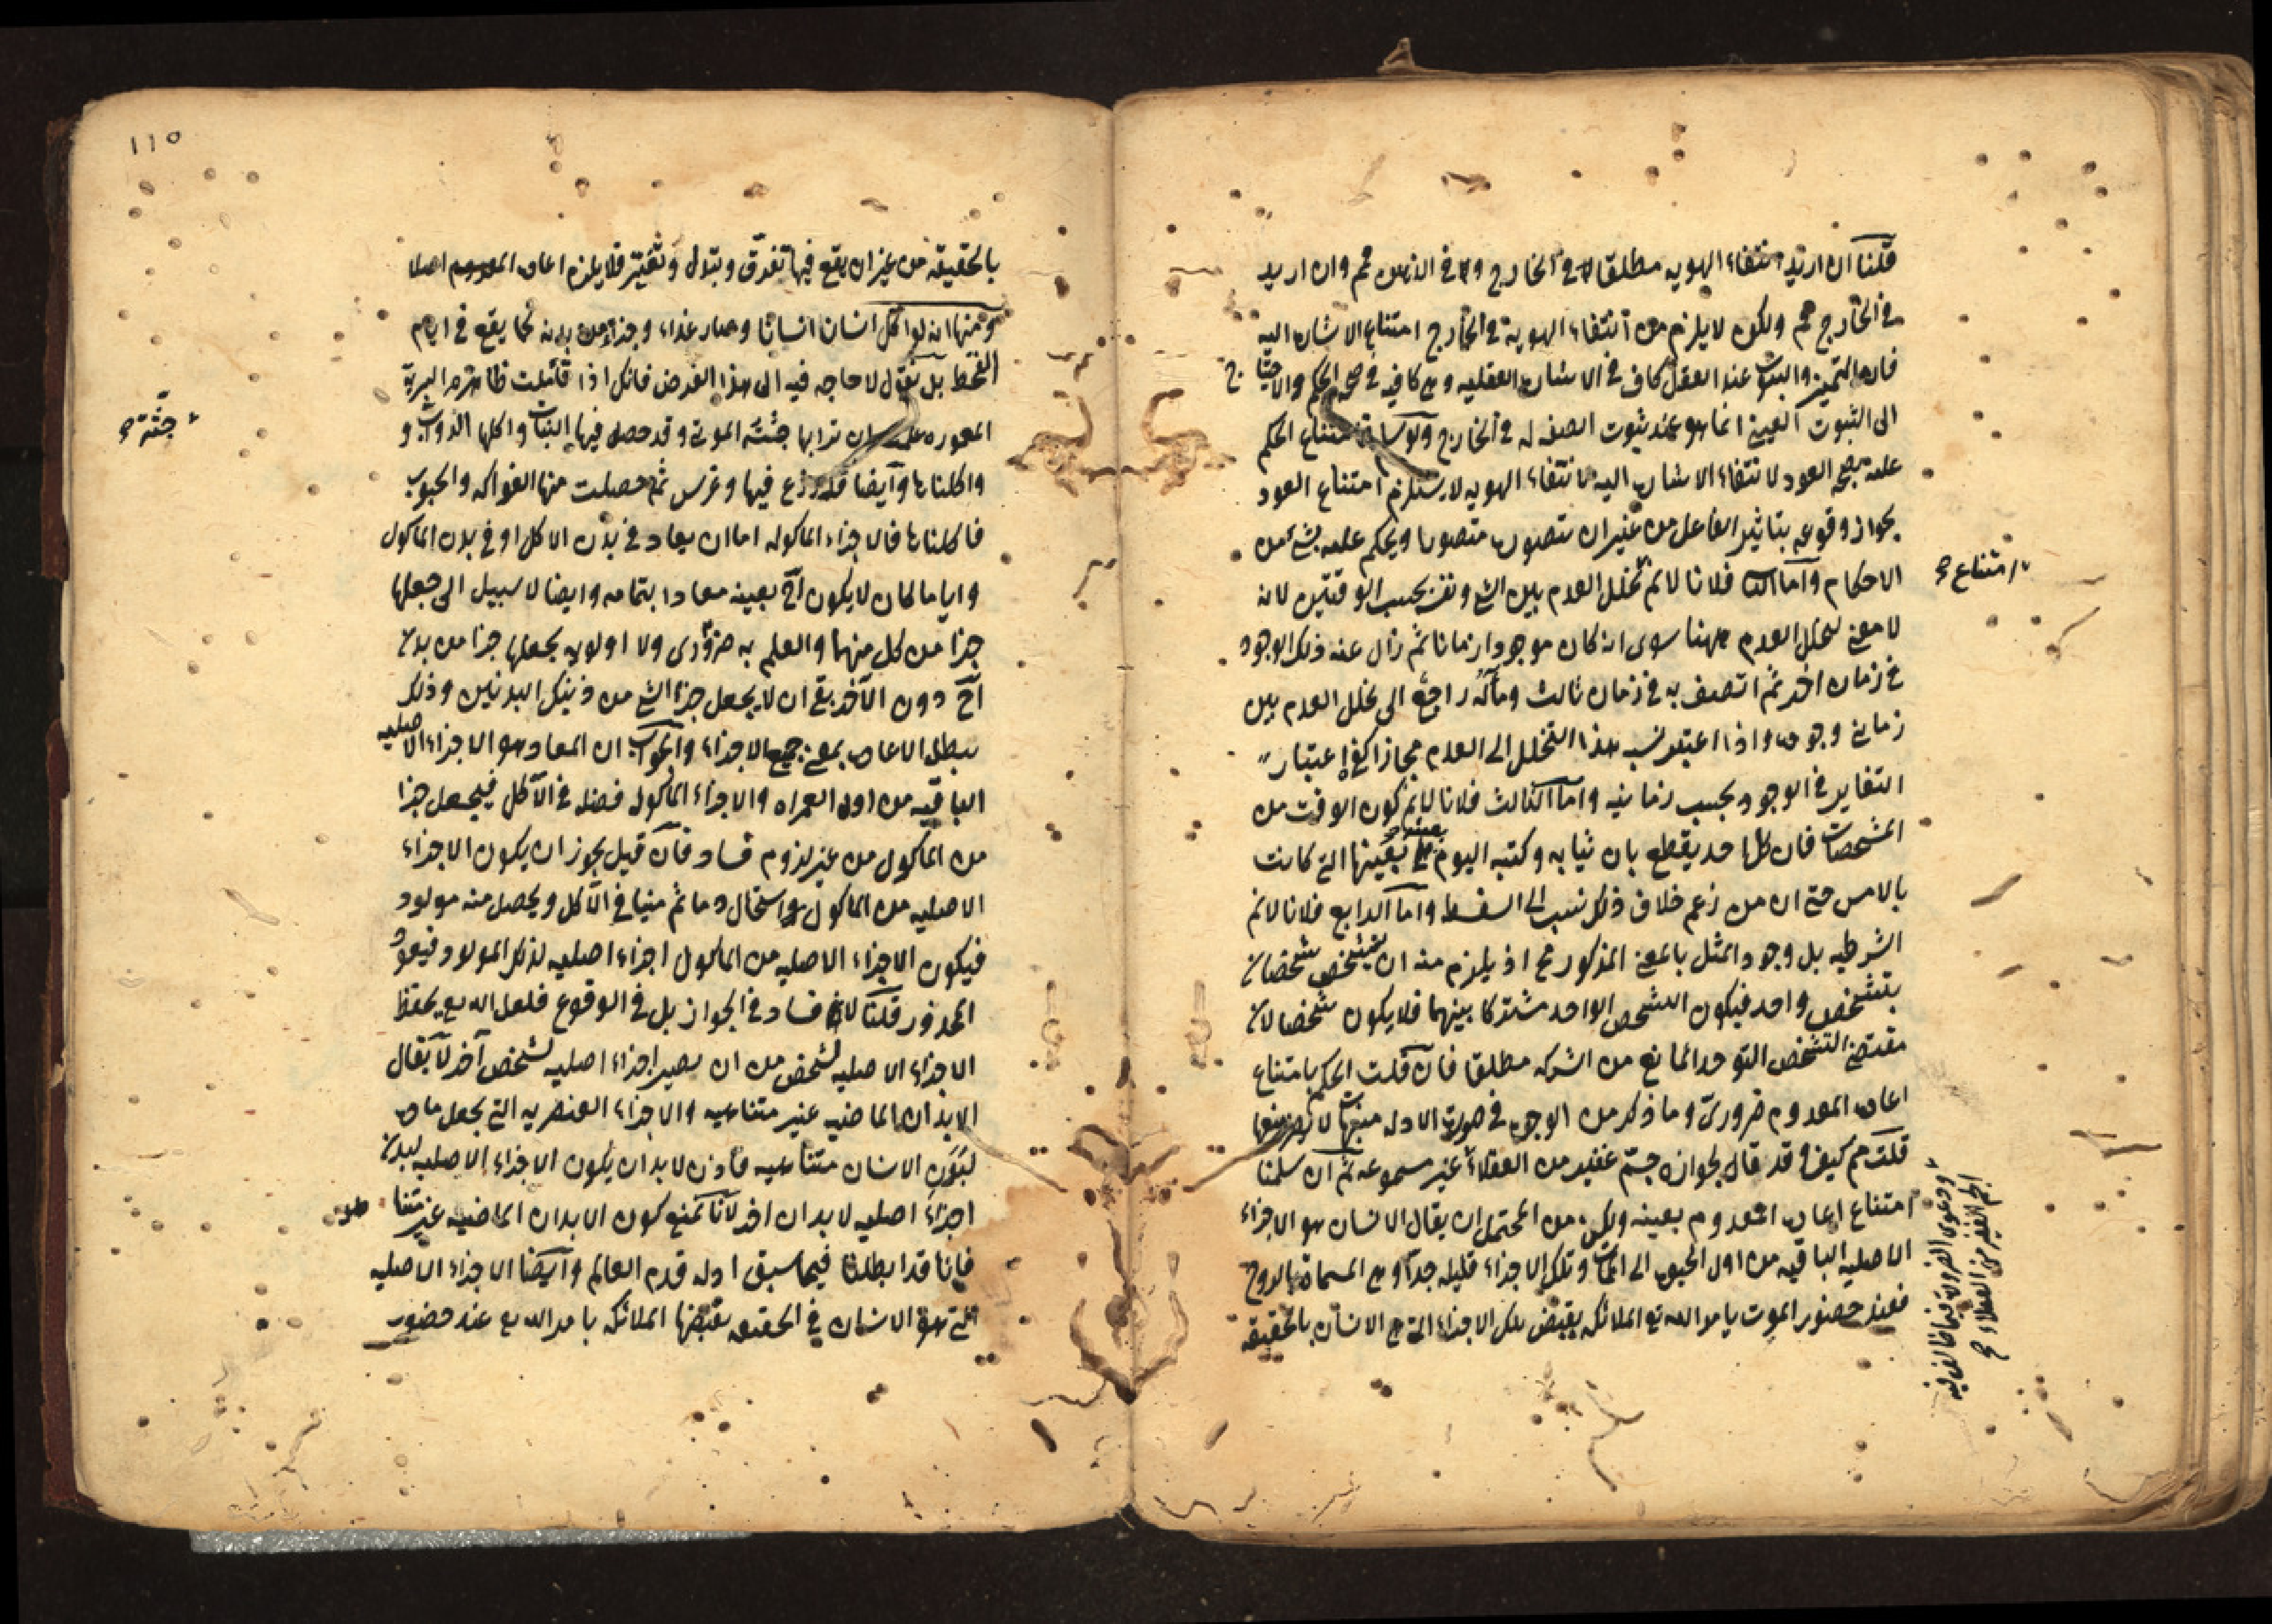 قلنا ان اريد انتفاء الهويه مطلقا لا في الخارج ولا في الذهن مم وان اريد
في الخارج مم ولكن لا يلزم من انتفاء الهوية في الخارج امتناع الاشاره اليه
فان التميز والثبوت عند العقل كاف في الاشارة العقليه وهي كافيه في صحه الحكم والاحتياج
الى الثبوت العيني انما هو عند ثبوت الصفه له في الخارج ولو سلم امتناع الحكم
عليه بصحه العود لانتفاء الاشاره اليه لانتفاء الهويه لا يستلزم امتناع العود
بجواز وقوعه بتاثير الفاعل من غير ان يتصوره متصور او يحكم عليه بشئ من
الاحكام واما الثانى فلانا لانم تخلل العدم بين الشئ ونفسه بحسب الوقتين لانه
لا معنى لتخلل العدم ههنا سوى انه كان موجودا زمانا ثم زال عنه ذلك الوجود
في زمان اخر ثم اتصف به في زمان ثالث ومآله راجع الى تخلل العدم بين
زمانى وجوده واذا اعتبر نسب هذا التخلل الى العدم مجازا كفى اعتبار
التغاير في الوجود بحسب زمانيه واما الثالث فلانا لانم كون الوقت من
المشخصات فان كل احد يقطع بان ثيابه وكتبه اليوم هي بعينها التي كانت
بالامس حتى ان من زعم خلاف ذلك نسب الى السفسطه واما الرابع فلانا لانم
الشرطيه بل وجود المثل بالمعنى المذكور مح اذ يلزم منه ان يتشخص شخصان
بتشخص واحد فيكون التشخص الواحد مشتركا بينهما فلا يكون تشخصا لان
مقتضى التشخص التوحد المانع من الشركه مطلقا فان قلت الحكم بامتناع
اعاده المعدوم ضروري وما ذكر من الوجوه في صورة الادله منبهات لا يضر منعها
قلت مم كيف وقد قال بجوازه جم غفير من العقلاء غير مسموعه ثم ان سلمنا
امتناع اعاده المعدوم بعينه ولكن من المحتمل ان يقال الانسان هو الاجزاء
الاصليه الباقيه من اول الحيوه الى الممات وتلك الاجزاء قليله جدا وهي المسماة بالروح
فعند حضور الموت يامر الله تع الملائكه بقبض تلك الاجزاء التي هي الانسان بالحقيقه
امتناع صح
ودعوى الضرورة فيما خالف فيه
الجم الغفير من العقلاء صح
١١٥
بالحقيقه من غير ان يقع فيها تفرق وتبدل وتغير فلا يلزم اعاده المعدوم اصلا
ومنها انه لو اكل انسان انسانا وصار غذاء وجزءا من بدنه كما يقع في ايام
القحط بل نقول لا حاجه فيه الى هذا الفرض فانك اذا تأملت ظاهر البرية
المعموره علمت ان ترابها جثث الموتى وقد حصل فيها النبات واكلها الدواب و
واكلناها وايضا قد زرع فيها وغرس ثم حصلت منها الفواكه والحبوب
فاكلناها فالاجزاء الماكوله اما ان يعاد في بدن الاكل او في بدن الماكول
وايا ما كان لا يكون اح بعينه معادا بتمامه وايضا لا سبيل الى جعلها
جزا من كل منهما والعلم به ضروري ولا اولويه بجعلها جزا من بدن
اح دون الآخر بقى ان لا يجعل جزا لشئ من ذينك البدنين وذلك
يبطل الاعاده بمعنى جميع الاجزاء والجواب ان المعاد هو الاجزاء الاصليه
الباقيه من اول العمر الى والاجزاء الماكوله فضله في الآكل فيجعل جزا
من الماكول من غير لزوم فساد فان قيل يجوز ان يكون الاجزاء
الاصليه من الماكول واستحال دما ثم منيا في الآكل ويحصل منه مولود
فيكون الاجزاء الاصليه من الماكول اجزاء اصليه لذلك المولود فيعود
المحذور قلنا لا فساد في الجواز بل في الوقوع فلعل الله تع يحفظ
الاجزاء الاصليه لشخص من ان يصير اجزاء اصليه لشخص آخر لا يقال
الابدان الماضيه غير متناهيه والاجزاء العنصريه التي يجعل ماده
لتكون الانسان متناهيه فاذن لا بد ان يكون الاجزاء الاصليه لبدن
اجزاء اصليه لابدان اخر لانا نمنع كون الابدان الماضيه غير متناهيه
فانا قد ابطلنا فيما سبق ادله قدم العالم وايضا الاجزاء الاصليه
التي هو الانسان في الحقيقه يقبضها الملائكه بامر الله تع عند حضور
جثة صح